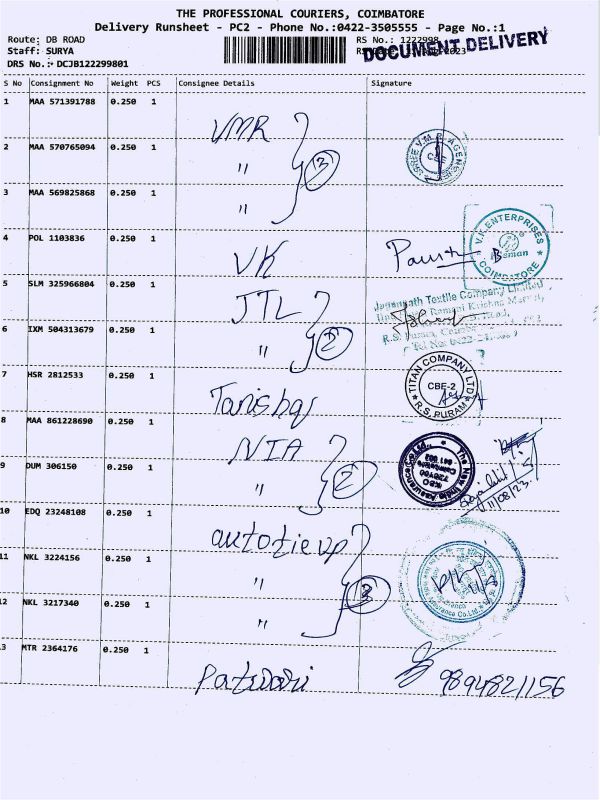 THE PROFESSIONAL COURIERS, COIMBATORE
Delivery Runsheet - PC2 - Phone No.:0422-3505555 - Page No.:1
Route: DB ROAD RS No.: 1222998
Staff: SURYA
DOCUMENT DELIVERY
DRS No.: DCJB122299801
S No Consignment No Weight PCS Consignee Details Signature
1 MAA 571391788 0.250 1 VMR
2 MAA 570765094 0.250 1 "
3
SHREE V.M.R AGENCIES
CBE
3 MAA 569825868 0.250 1 "
4 POL 1103836 0.250 1 VK
V.K ENTERPRISES
COIMBATORE
5 SLM 325966804 0.250 1 JTL
Jagannath Textile Company Limited
6 IXM 504313679 0.250 1 "
2
R.S. Puram,
7 HSR 2812533 0.250 1 Tanishq
TITAN COMPANY LTD
CBE-2
R.S. PURAM
8 MAA 861228690 0.250 1 NIA
The New India Assurance Co. Ltd.,
9 DUM 306150 0.250 1 "
2
11/08/23
10 EDQ 23248108 0.250 1 autotieup
11 NKL 3224156 0.250 1 "
3
12 NKL 3217340 0.250 1 "
13 MTR 2364176 0.250 1 Patwari
9894821156